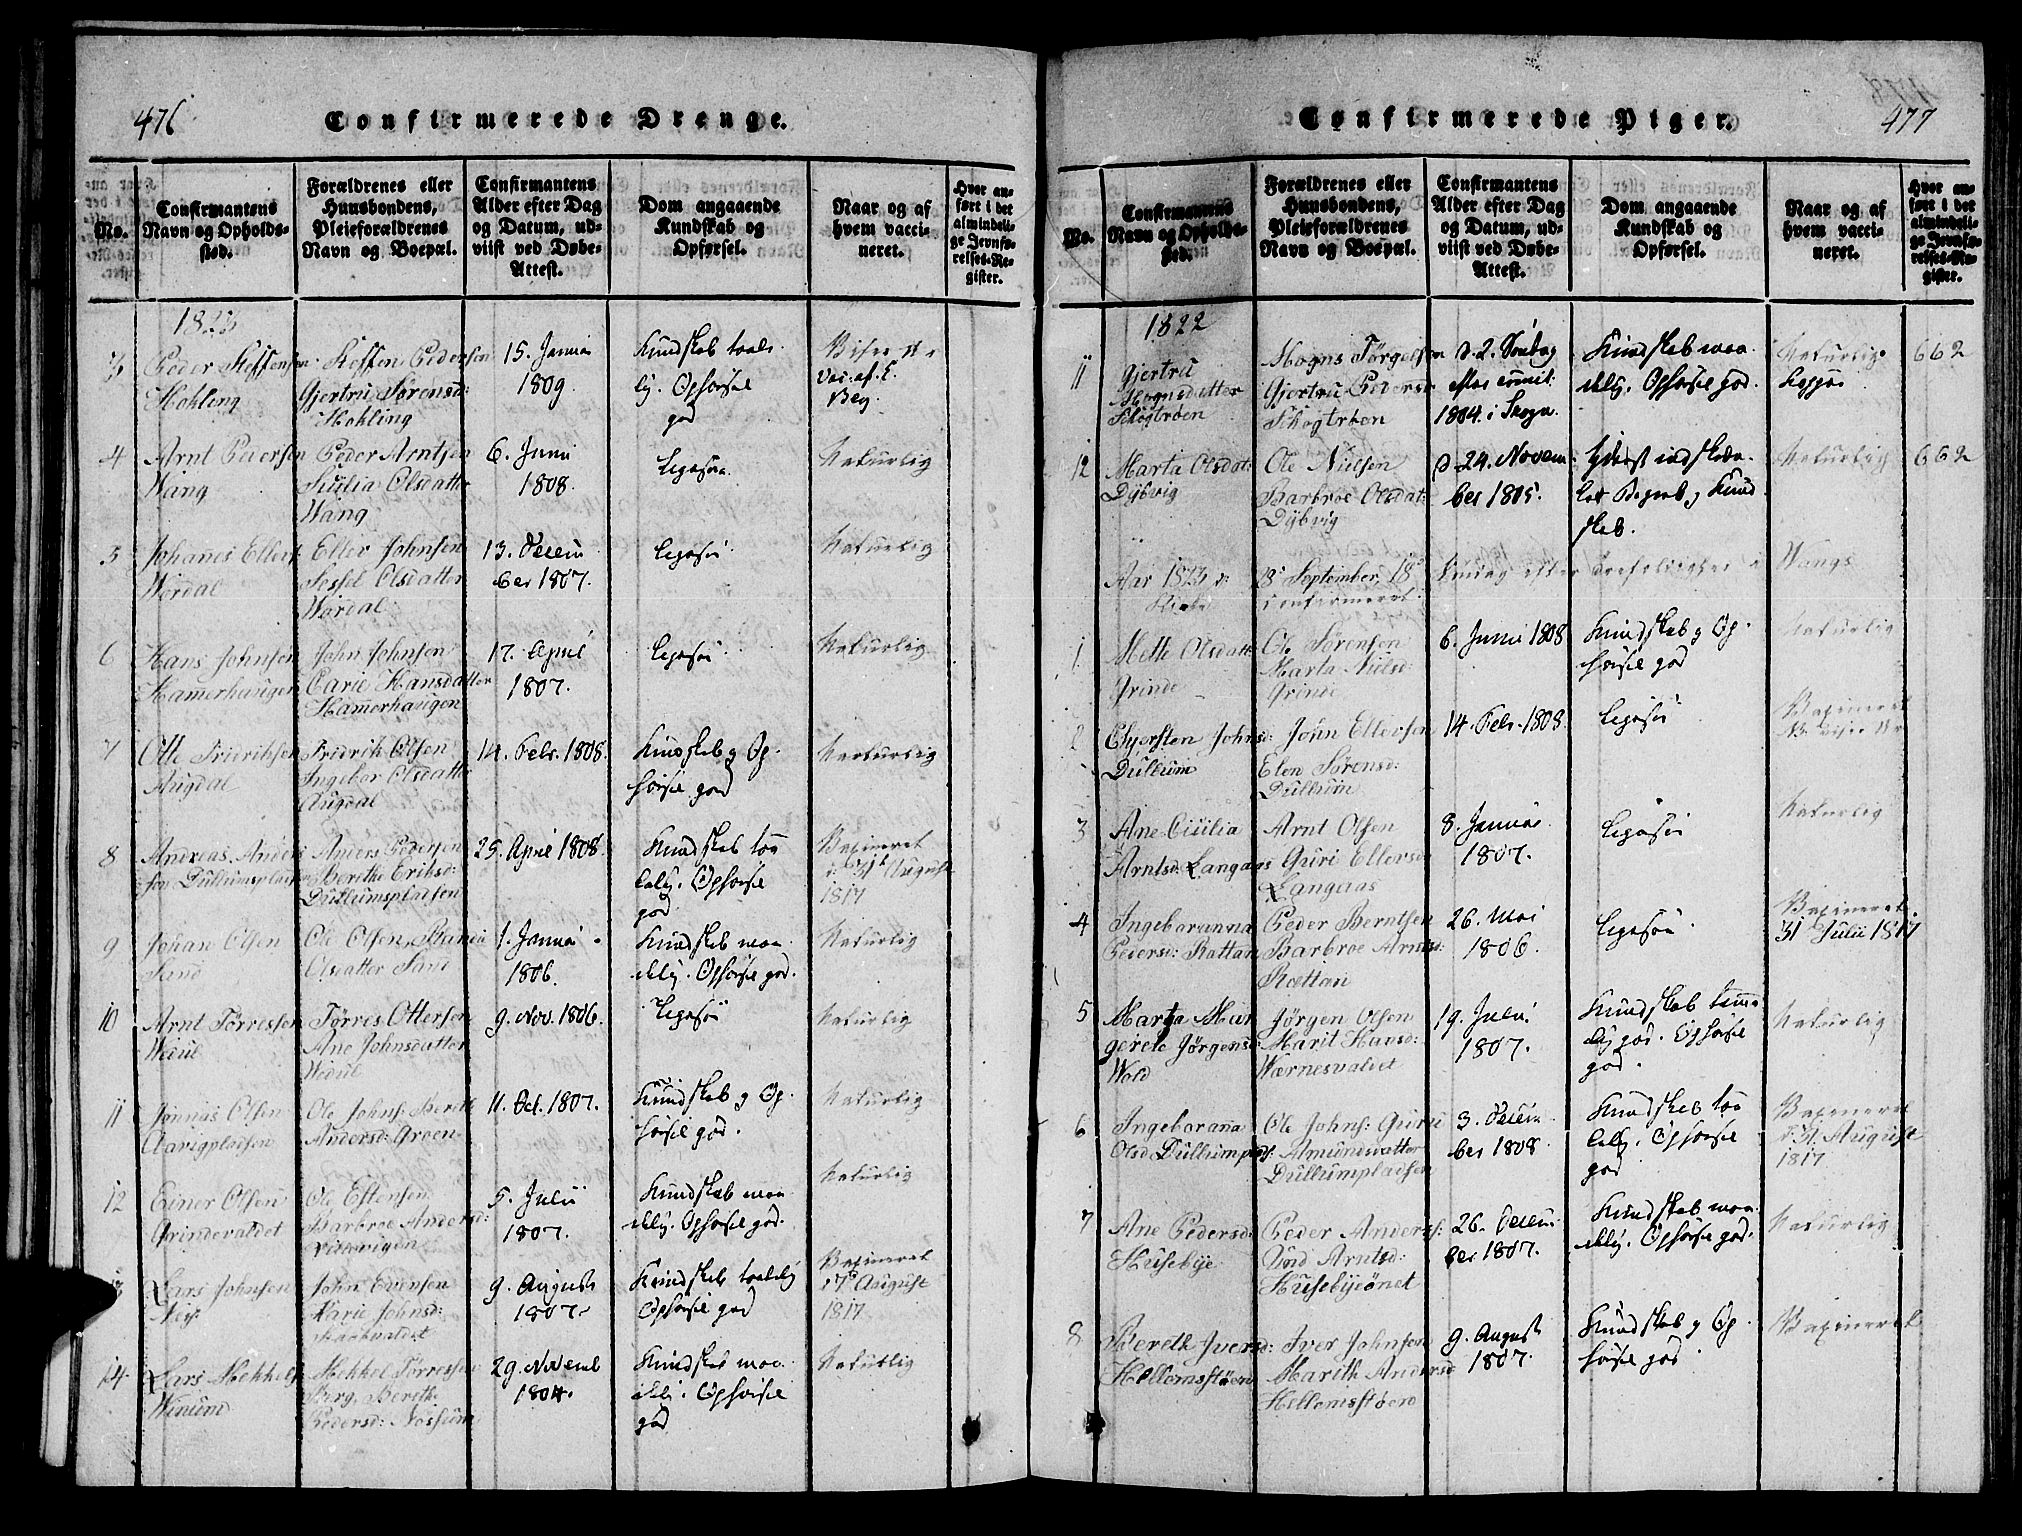 476
Confirmerede Drenge.
No.
Confirmantens
Navn og Opholds-
sted.
Forældrenes eller
Huusbondens,
Pleieforældrenes
Navn og Boepæl.
Confirmantens
Alder efter Dag
og Datum, ud-
viist ved Døbe-
Attest.
Dom angaaende
Kundskab og
Opførsel.
Naar og af
hvem vacci-
neret.
Hvor an-
ført i det
almindeli-
ge Jevnfø-
relses-Re-
gister.
Peder Steffensen
Hokling
Steffen Pedersen
Gjertru Sørensd:
Hokling
15. Januar
1809
Kundskab taale-
lig. Opførsel
god
4
Arnt Pedersen
Wang
Peder Arntsen
Olsdatter
Wang
6. Juni
1808
Ligesaa
Naturlig
5
Johanes Ellert
Wordal
Eller Johnsen
Sessel Olsdatter
Wordal
13. Decem
ber 1807.
Ligesaa
Naturlig
6
Hans Johnsen
Hamerhaugen
John Johnsen
Carie Hansdatter
Hamerhaugen
17. April
1807.
Ligesaa
Naturlig
7
Otte Friderichsen
Augdal
Fridrik Olsen
Ingebor Olsdatter
Augdal
14. Febr. 1808.
Kundskab og Op-
førsel god
Naturlig
8
Andreas Anders
sen Dullumspladsen
Anders Pedersen
Berethe Eriksd:
Dullumspladsen
25. April 1808.
Kundskab taa
lelig. Opførsel
god
Vaxineret
d: 31 August
1817
9
Johan Olsen
Sand
Ole Olsen,
Olsdatter Sand
1. Januar
1806.
Kundskab maa-
delig. Opførsel god.
Naturlig
10
Arnt Tørresen
Wedul
Tørres Ottersen
Ane Johnsdatter
Wedul
9. Nov. 1806.
Ligesaa
Naturlig
11
Jonnas Olsen
Ole Johns: Berith
Andersd: Groen
11. Oct. 1807.
Kundskab og Op-
førsel god.
Naturlig
12
Einer Olsen
Grindevaldet
Ole Estensen
Barbroe Andersd:
5. Julii
1807.
Kundskab maa
delig. Opførsel god.
Naturlig
Lars Johnsen
John Evensen
Marie Johnsd:
9. August
1807.
Kundskab taalelig
Opførsel god
Vaxineret
17 August
1817
14
Lars Mekkels
Winum
Mekkel Tørresen
Berg, Berethe
Pedersd: Nossum
29. Novemb
1804.
Kundskab maa
delig. Opførsel
god
Naturlig
477
Confirmerede Piger.
No.
Confirmantens
Navn og Opholds-
sted.
Forældrenes eller
Huusbondens,
Pleieforældrenes
Navn og Boepæl.
Confirmantens
Alder efter Dag
og Datum, ud-
viist ved Døbe-
Attest.
Dom angaaende
Kundskab og
Opførsel.
Naar og af
hvem vacci-
neret.
Hvor an-
ført i det
almindeli-
ge Jevnfø-
relses-Re-
gister.
1822
11
Gjertru
Mognsdatter
Skogtrøen
Mogns Tørgelsen
Gjertru Pedersd
Skogtrøen
d. 2. Søndag
1804. i Skogn
Kundskab maa-
delig. Opførsel god.
Naturlig
Kopper
662
12
Marta Olsdat:
Dybvig
Ole Nielsen
Barbroe Olsdat:
Dybvig
d. 24. Novem-
ber 1805.
Yderst indskræn-
ket Begreb og Kund
skab.
Naturlig
662
Aar 1823 d: 28 September, 18 Søndag efter Trefoldighed i Wangs
Kirke confirmeret
1
Meth Olsdatt
Grinde
Ole Sørensen
Marta Nielsd:
Grinde
6. Juni 1808
Kundskab og Op-
førsel god
Naturlig
2
Chjersten Johnsd:
Dullum
John Ellersen
Elen Sørensd:
Dullum
14. Febr. 1808.
Ligesaa
Vaxineret
3
Ane Cicilia
Arntsd: Langaas
Arnt Olsen
Guri Ellersd
Langaas
8. Januar
1807.
Ligesaa
Naturlig
4
Ingeboranna
Pedersd: Rattan
Peder Berntsen
Barbroe Arntsd:
Rattan
26. Mai
1806.
Ligesaa
Vaxineret
31 Julii 1817
5
Marta Mar
gerete Jørgensd
Wold
Jørgen Olsen
Marit Hansd:
Wærnesvalvet
19. Juli
1807.
Kundskab teme
lig god. Opførsel
god.
Naturlig
6
Ingeborana
Olsd Dullumplads:
Ole Johns: Guru
Amundsdatter
Dullumpladsen
3. Decem
ber 1808
Kundskab taa
lelig. Opførsel
god
Vaxineret
d 31. August
1817
7
Ane Pedersd:
Husebye
Peder Anders:
Arntsd:
Husebyeønet
26. Decem
ber 1807.
Kundskab maa-
delig. Opførsel god.
Naturlig
8
Bereth Iversd:
Hellemstøen
Iver Johnsen
Marith Andersd
Hellemsstøen
9. August
1807.
Kundskab og Op-
førsel god
Vaxineret